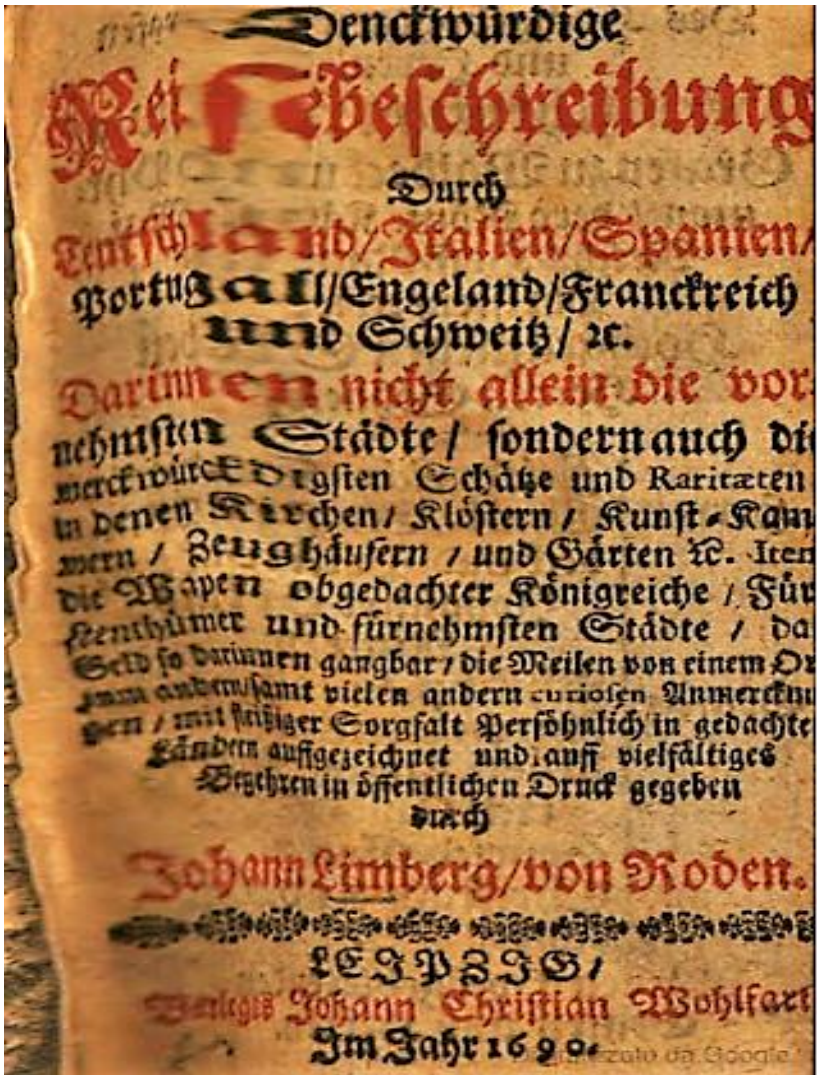 Denckwürdige
Reisebeschreibung
Durch
Teutschland/Italien/Spanien/
Portugall/Engeland/Franckreich
und Schweitz/ ꝛc.
Darinnen nicht allein die vor-
nehmsten Städte/ sondern auch die
merckwürdigsten Schätze und Raritæten
in denen Kirchen/ Klöstern/ Kunst-Kam
mern / Zeughäusern / und Gärten ꝛc. Item
die Wapen obgedachter Königreiche / Für
stenthümer und fürnehmsten Städte / da
Geld so darinnen gangbar / die Meilen von einem Or
zum andern/samt vielen andern curiosen Anmercknu
gen / mit fleißiger Sorgfalt Persöhnlich in gedachte
Ländern auffgezeichnet und auff vielfältiges
Begehren in öffentlichen Druck gegeben
durch
Johann Limberg/von Roden.
LEIPZIG/
Verlegts Johann Christian Wohlfart
Im Jahr 1690.
Google